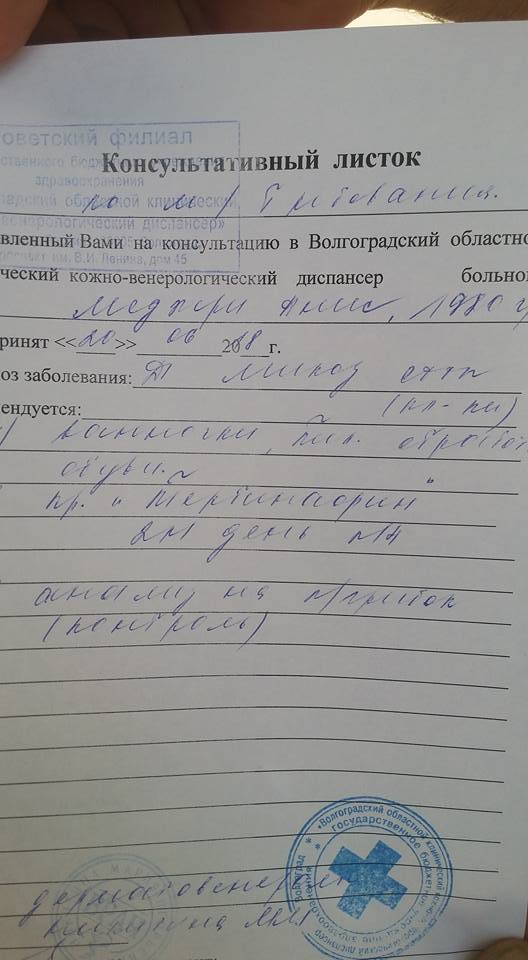 оветский филиал
ственного бюджетного
здравоохранения
адский областной клинический
венерологический диспансер»
проспект им. В.И. Ленина, дом 45
Консультативный листок
по м/требования.
вленный Вами на консультацию в Волгоградский областно
ический кожно-венерологический диспансер больно
1980 г
ринят <<20>> 06 2018 г.
оз заболевания: Д микоз стоп
(кл-ки)
ендуется:
ванночки, обработ
обуви.
кр. "Тербинафин"
2 день №14
анализ на грибок
(контроль)
дерматовенеролог
Волгоградский областной клинический
государственное бюджетное
здравоохранения
Волгоград
диспансер